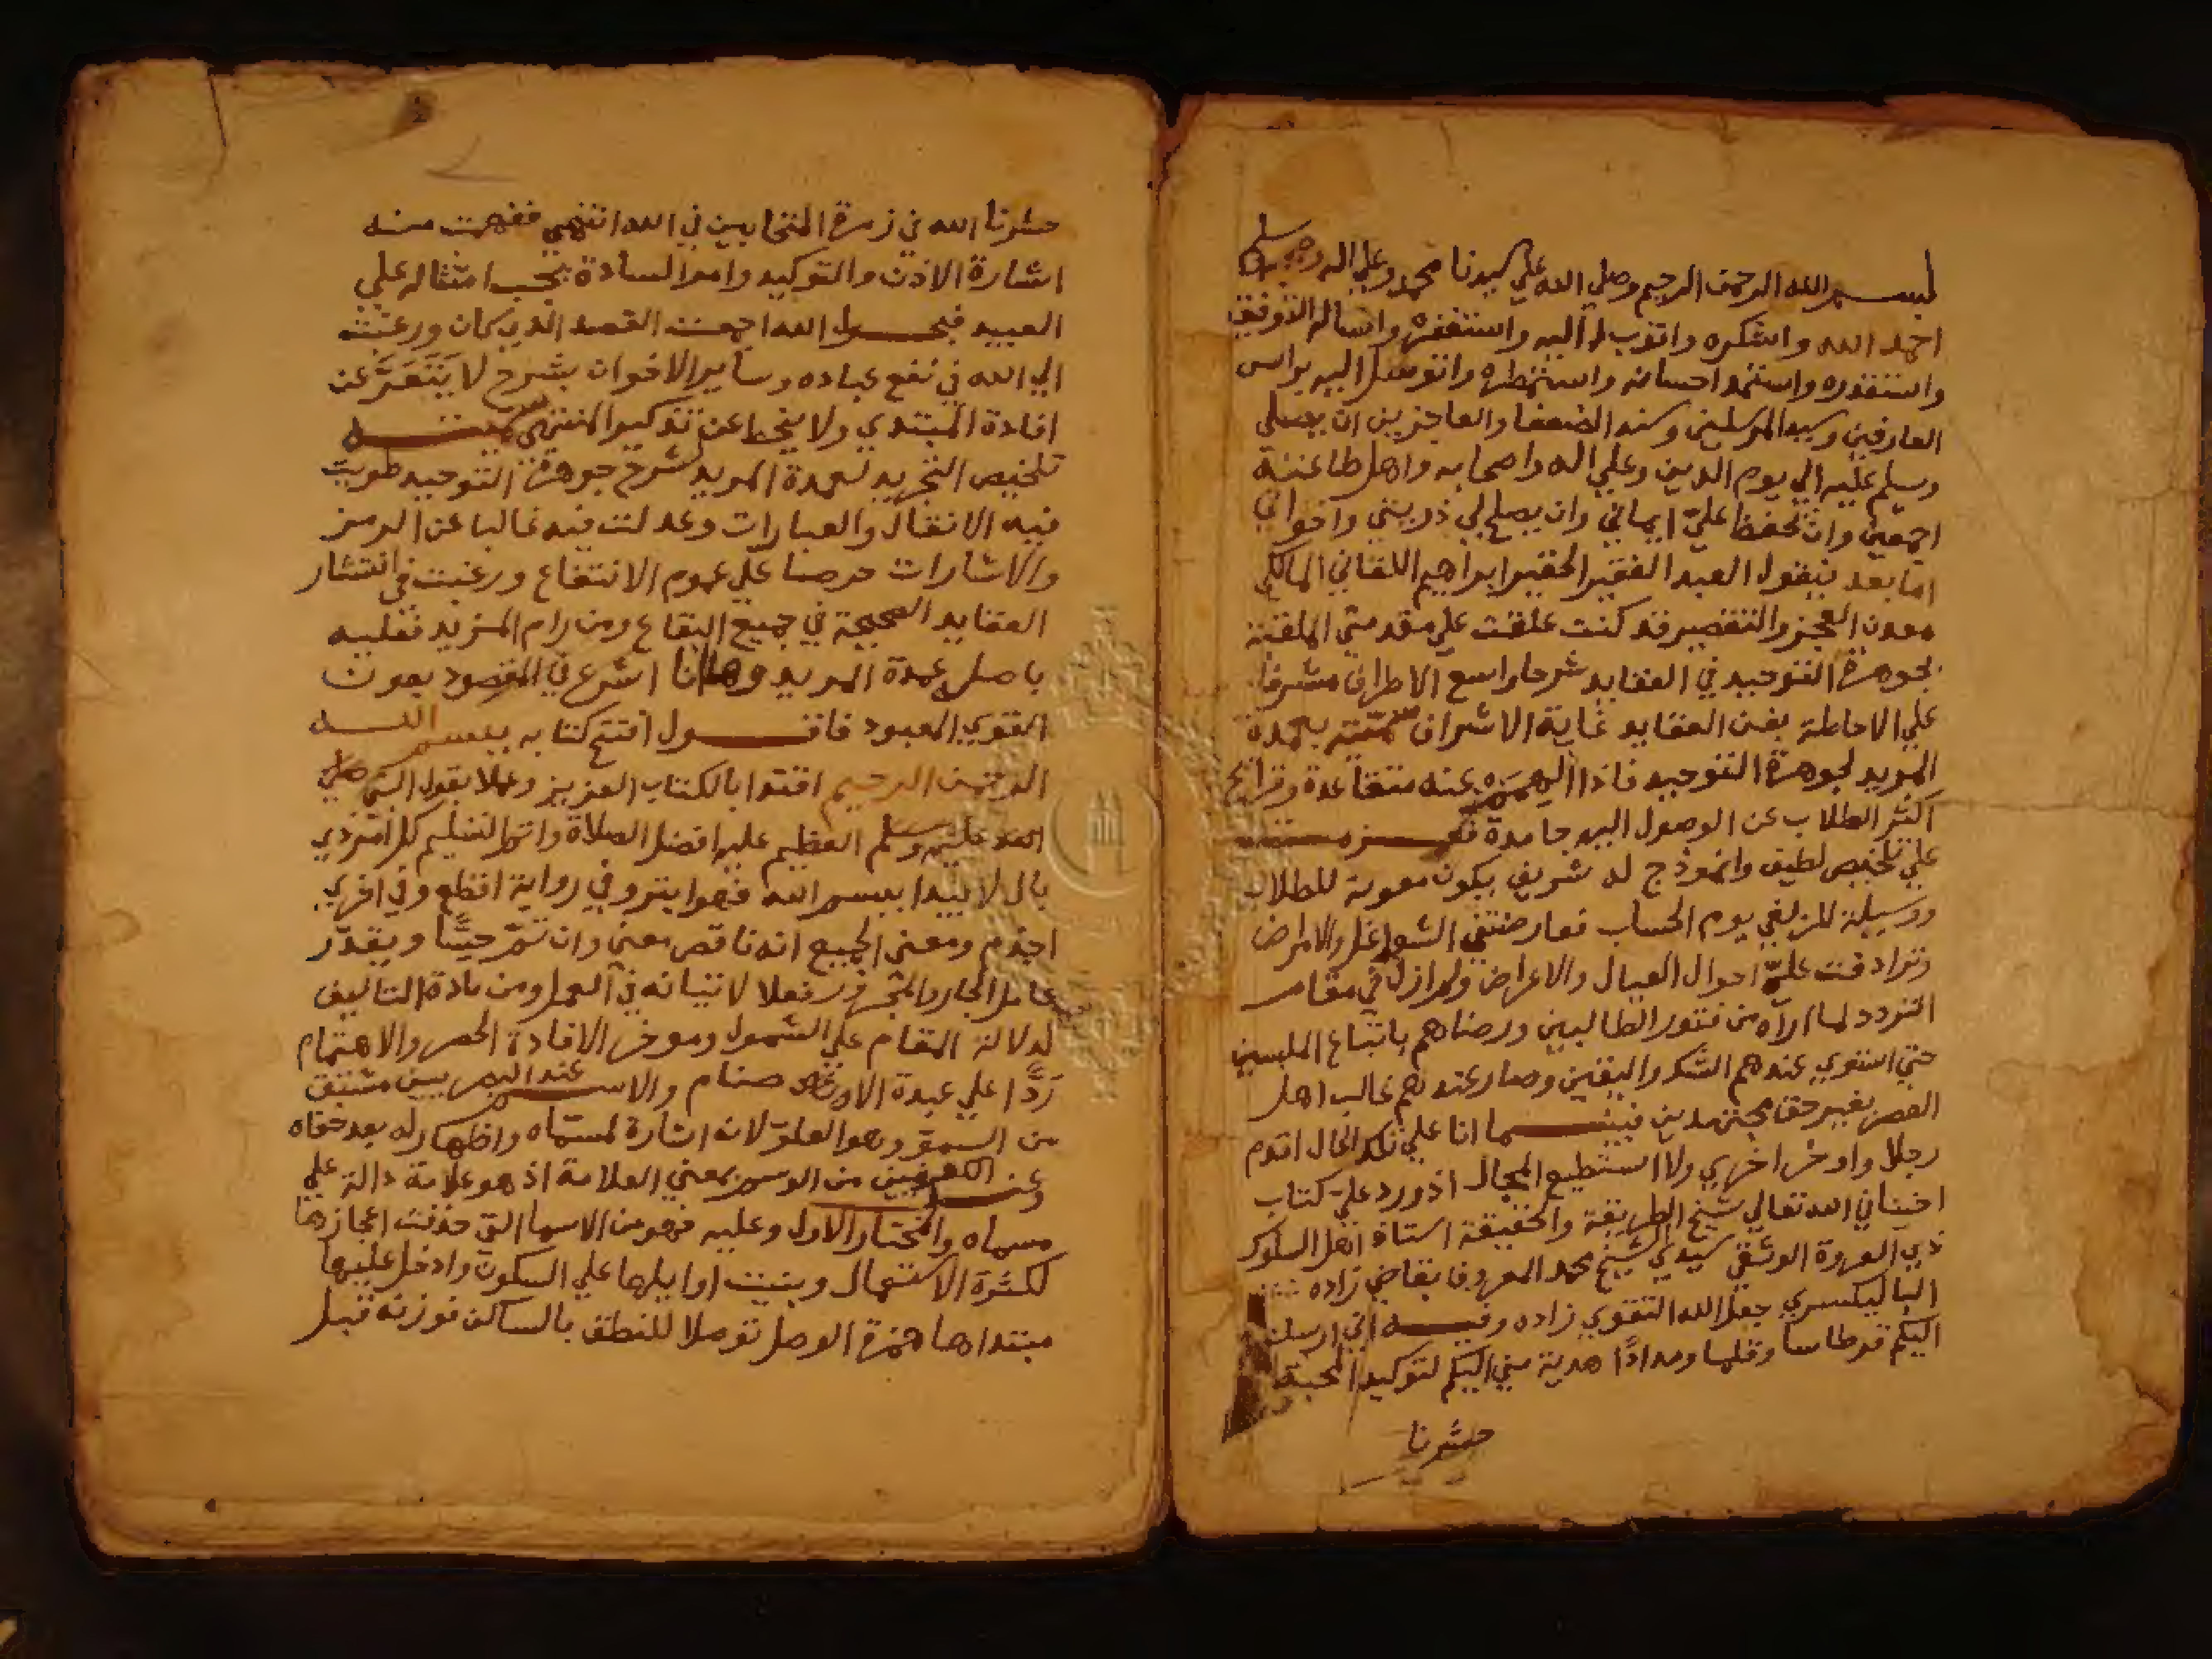 بسم الله الرحمن الرحيم وصلي الله علي سيدنا محمد وعلي اله وصحبه وسلم
احمد الله واشكره واتوب اليه واستغفره واساله التوفيق
واستقدره واستمد احسانه واستمطره واتوسل اليه براس
العارفين وسيد المرسلين وسند الضعفا والعاجزين ان يصلي
ويسلم عليه الي يوم الدين وعلي اله واصحابه واهل طاعته
اجمعين وان يحفظ عليّ ايماني وان يصلح لي ذريتي واخواني
اما بعد فيقول العبد الفقير الحقير ابراهيم اللقاني المالكي
معدن العجز والتقصير قد كنت علقت علي مقدمتي الملقبة
بجوهرة التوحيد في العقايد شرحا واسع الاطراف مشرفا
علي الاحاطة بفن العقايد غاية الاشراف سميته بعمدة
المريد لجوهرة التوحيد فاذا الهمم عنه متقاعدة وقرايح
اكثر الطلاب عن الوصول اليه جامدة فعزمت
علي تلخيص لطيف وانموذج له شريف يكون معونة للطلاب
ووسيلة للزلفي يوم الحساب فعارضتني الشواغل والامراض
وترادفت عليّ احوال العيال والاعراض ولم ازل في مقام
التردد لما اراه من فتور الطالبين ورضاهم باتباع الملبسين
حتي استوي عندهم الشك واليقين وصار عندهم غالب اهل
العصر بغير حق مجتهدين فبينما انا علي تلك الحال اقدم
رجلا واوخر اخري ولا استطيع المجال اذ ورد علي كتاب
اخينا في الله تعالي شيخ الطريقة والحقيقة استاذ اهل السلوك
ذي العروة الوثقي سيدي الشيخ محمد المعروف بقاضي زاده
الباليكسري جعل الله التقوي زاده وفيه اني ارسلت
اليكم قرطاسا وقلما ومدادًا هدية مني اليكم لتوكيد المحبة
حشرنا
حشرنا الله في زمرة المتحابين في الله انتهي ففهمت منه
اشارة الاذن والتوكيد وامر السادة يجب امتثاله علي
العبيد فبحول الله اجمعت القصد الذي كان ورغبت
الي الله في نفع عباده وساير الاخوان بشرح لا يَتَقَعَّر عن
افادة المبتدي ولا ينحط عن تذكير المنتهي سميته
تلخيص التجريد لعمدة المريد لشرح جوهرة التوحيد طويت
فيه الانقال والعبارات وعدلت فيه غالبا عن الرمز
والاشارات حرصا علي عموم الانتفاع ورغبت في انتشار
العقايد الصحيحة في جميع البقاع ومن رام المزيد فعليه
باصله عمدة المريد وها انا اشرع في المقصود بعون
القوي المعبود فاقول افتتح كتابه ببسم الله
الرحمن الرحيم اقتدا بالكتاب العزيز وعملا بقول النبي صلي
الله عليه وسلم العظيم عليه افضل الصلاة واتم التسليم كل امر ذي
بال لا يبدا ببسم الله فهو ابتر وفي رواية اقطع وفي اخري
اجذم ومعني الجميع انه ناقص معني وان تمّ حسًّا ويقدّر
عامل الجار والمجرور فعلا لاتيانه في العمل ومن مادة التاليف
لدلالة المقام علي الشمول وموخر الافادة الحصر والاهتمام
رَدًّا علي عبدة الاصنام والاسم عند البصريين مشتق
من السمو وهو العلوّ لانه اشارة لمسمّاه واظهار له بعد خفاه
وعند الكوفيين من الوسم بمعني العلامة اذ هو علامة دالة علي
مسماه والمختار الاول وعليه فهو من الاسما التي حذفت اعجازها
لكثرة الاستعمال وبنيت اوايلها علي السكون وادخل عليها
مبتداها همزة الوصل توصلا للنطق بالساكن فوزنه قبل